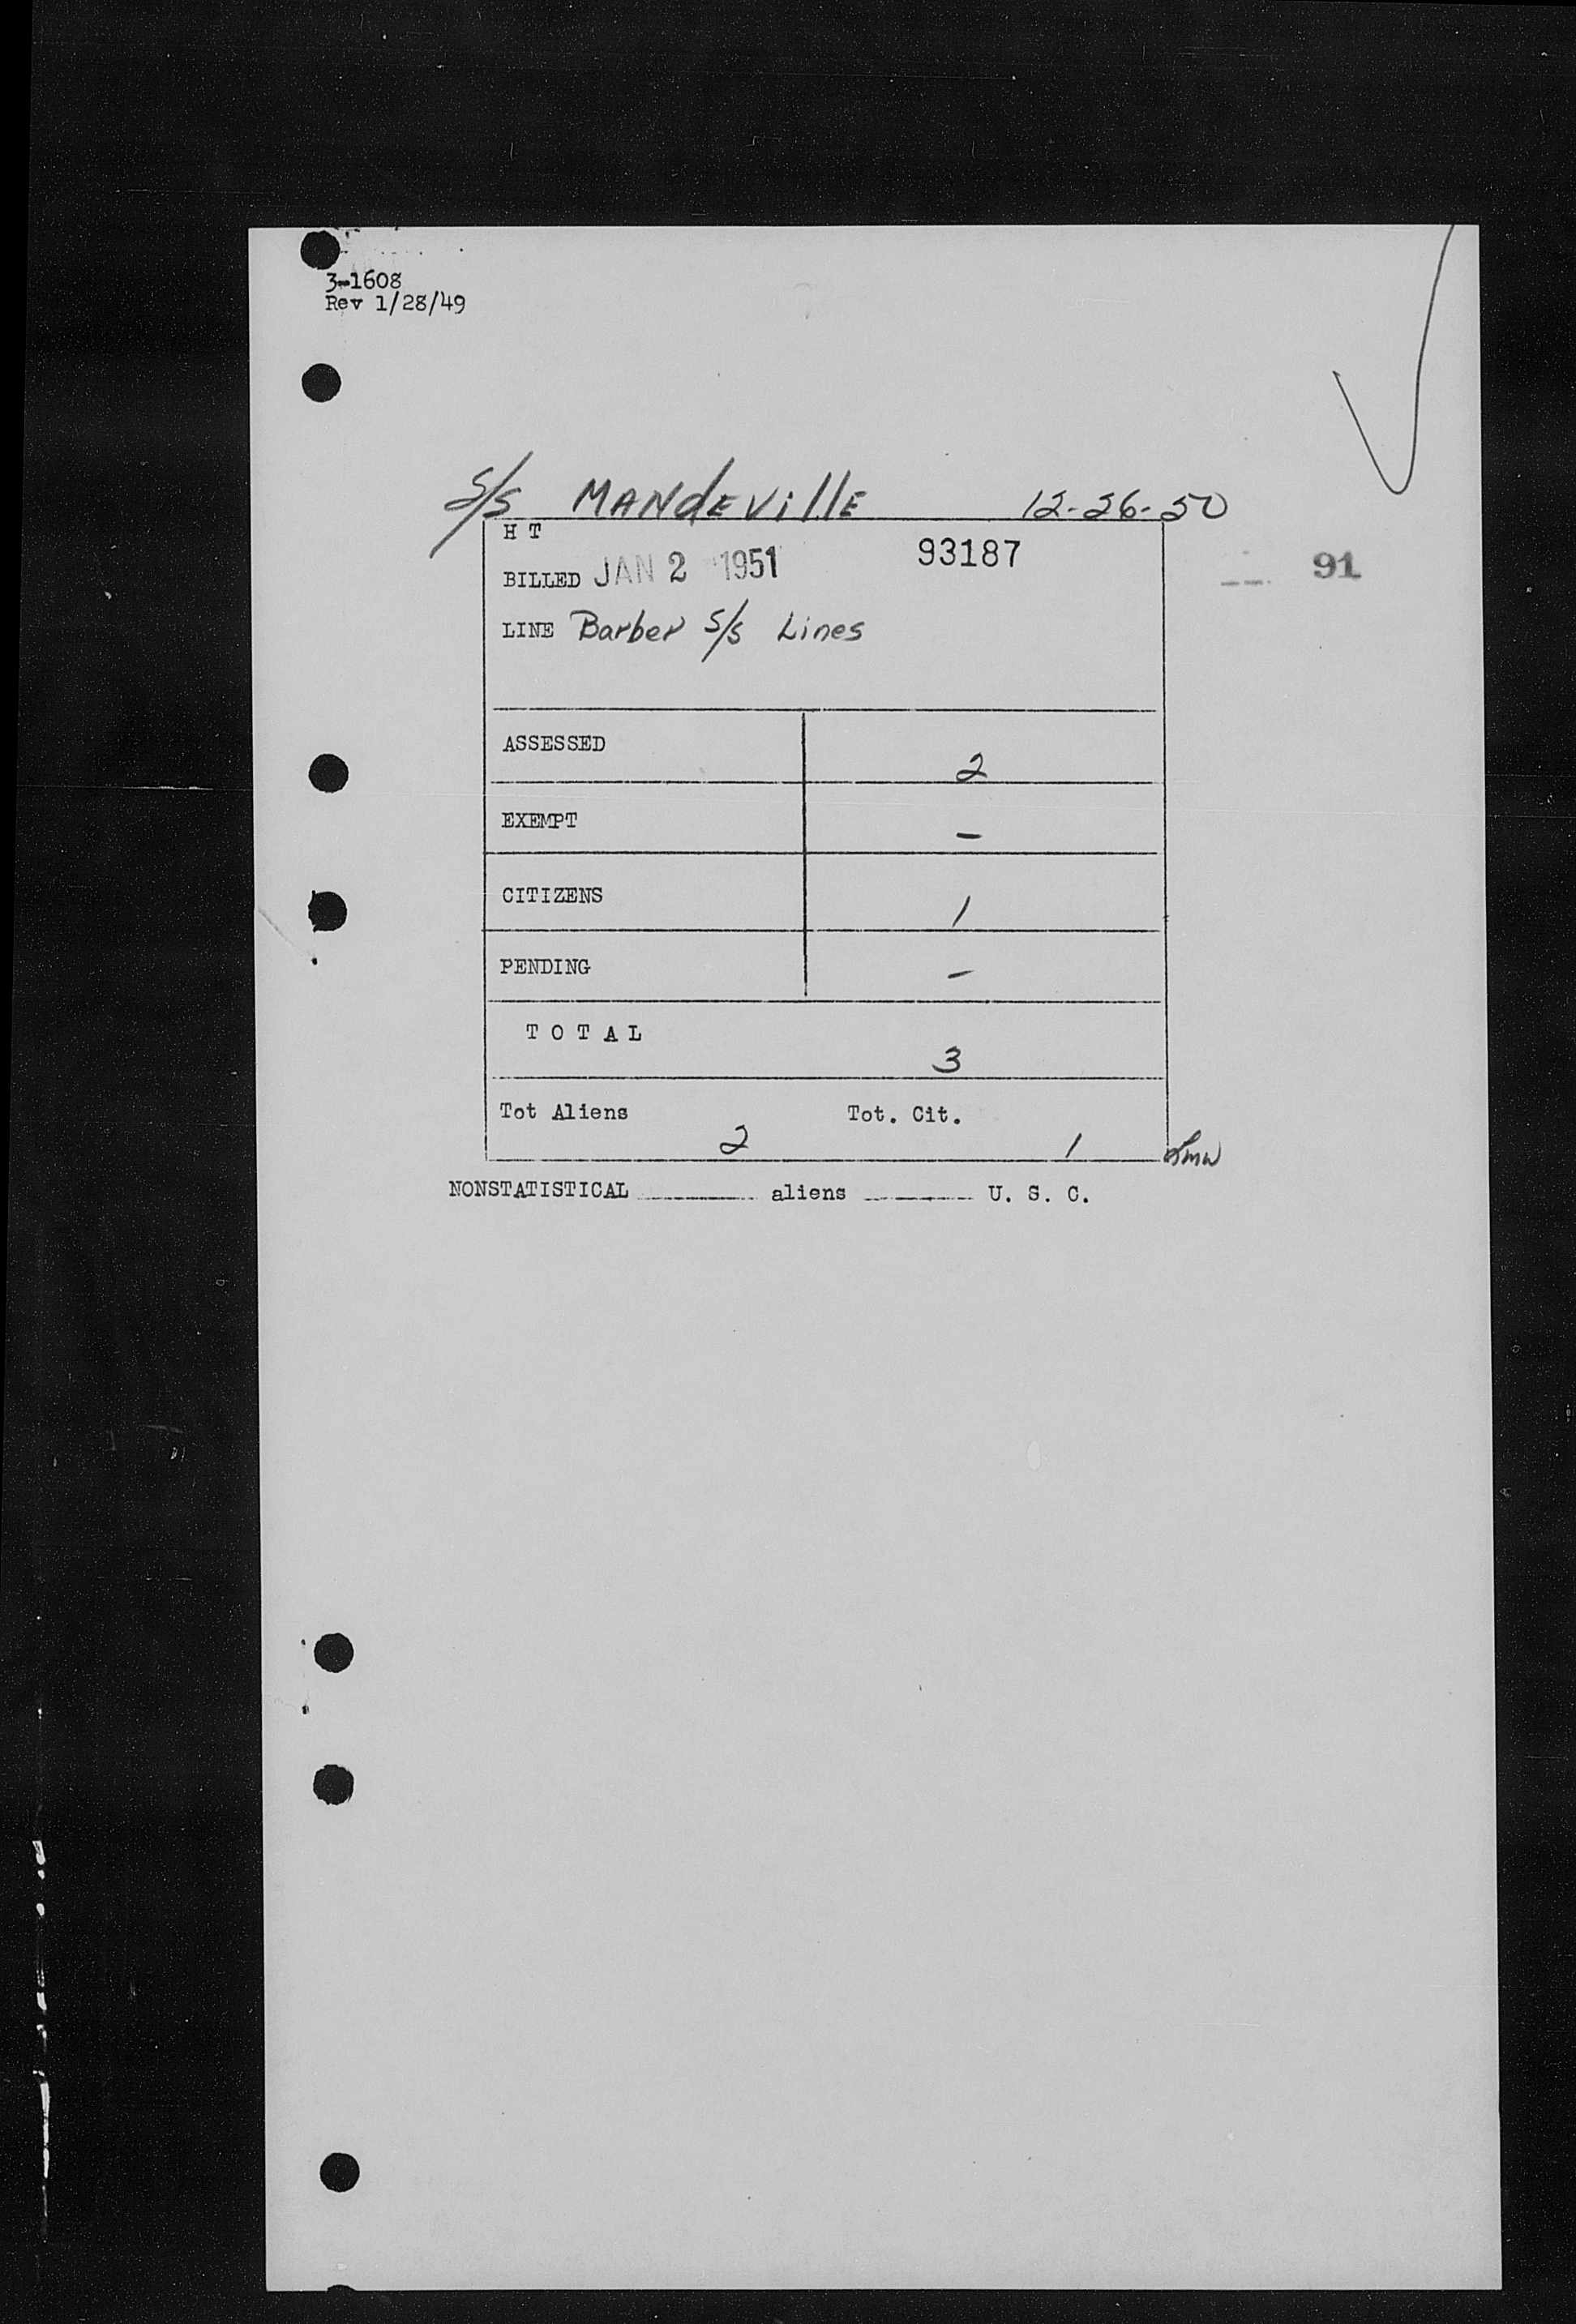 3-1608
Rev 1/28/49
S/S MANdEVillE 12-26-50
H T
BILLED JAN 2 1951 93187
91
LINE Barber S/S Lines
ASSESSED 2
EXEMPT -
CITIZENS 1
PENDING -
T O T A L 3
Tot Aliens 2 Tot. Cit. 1
NONSTATISTICAL ________ aliens ________ U. S. C.